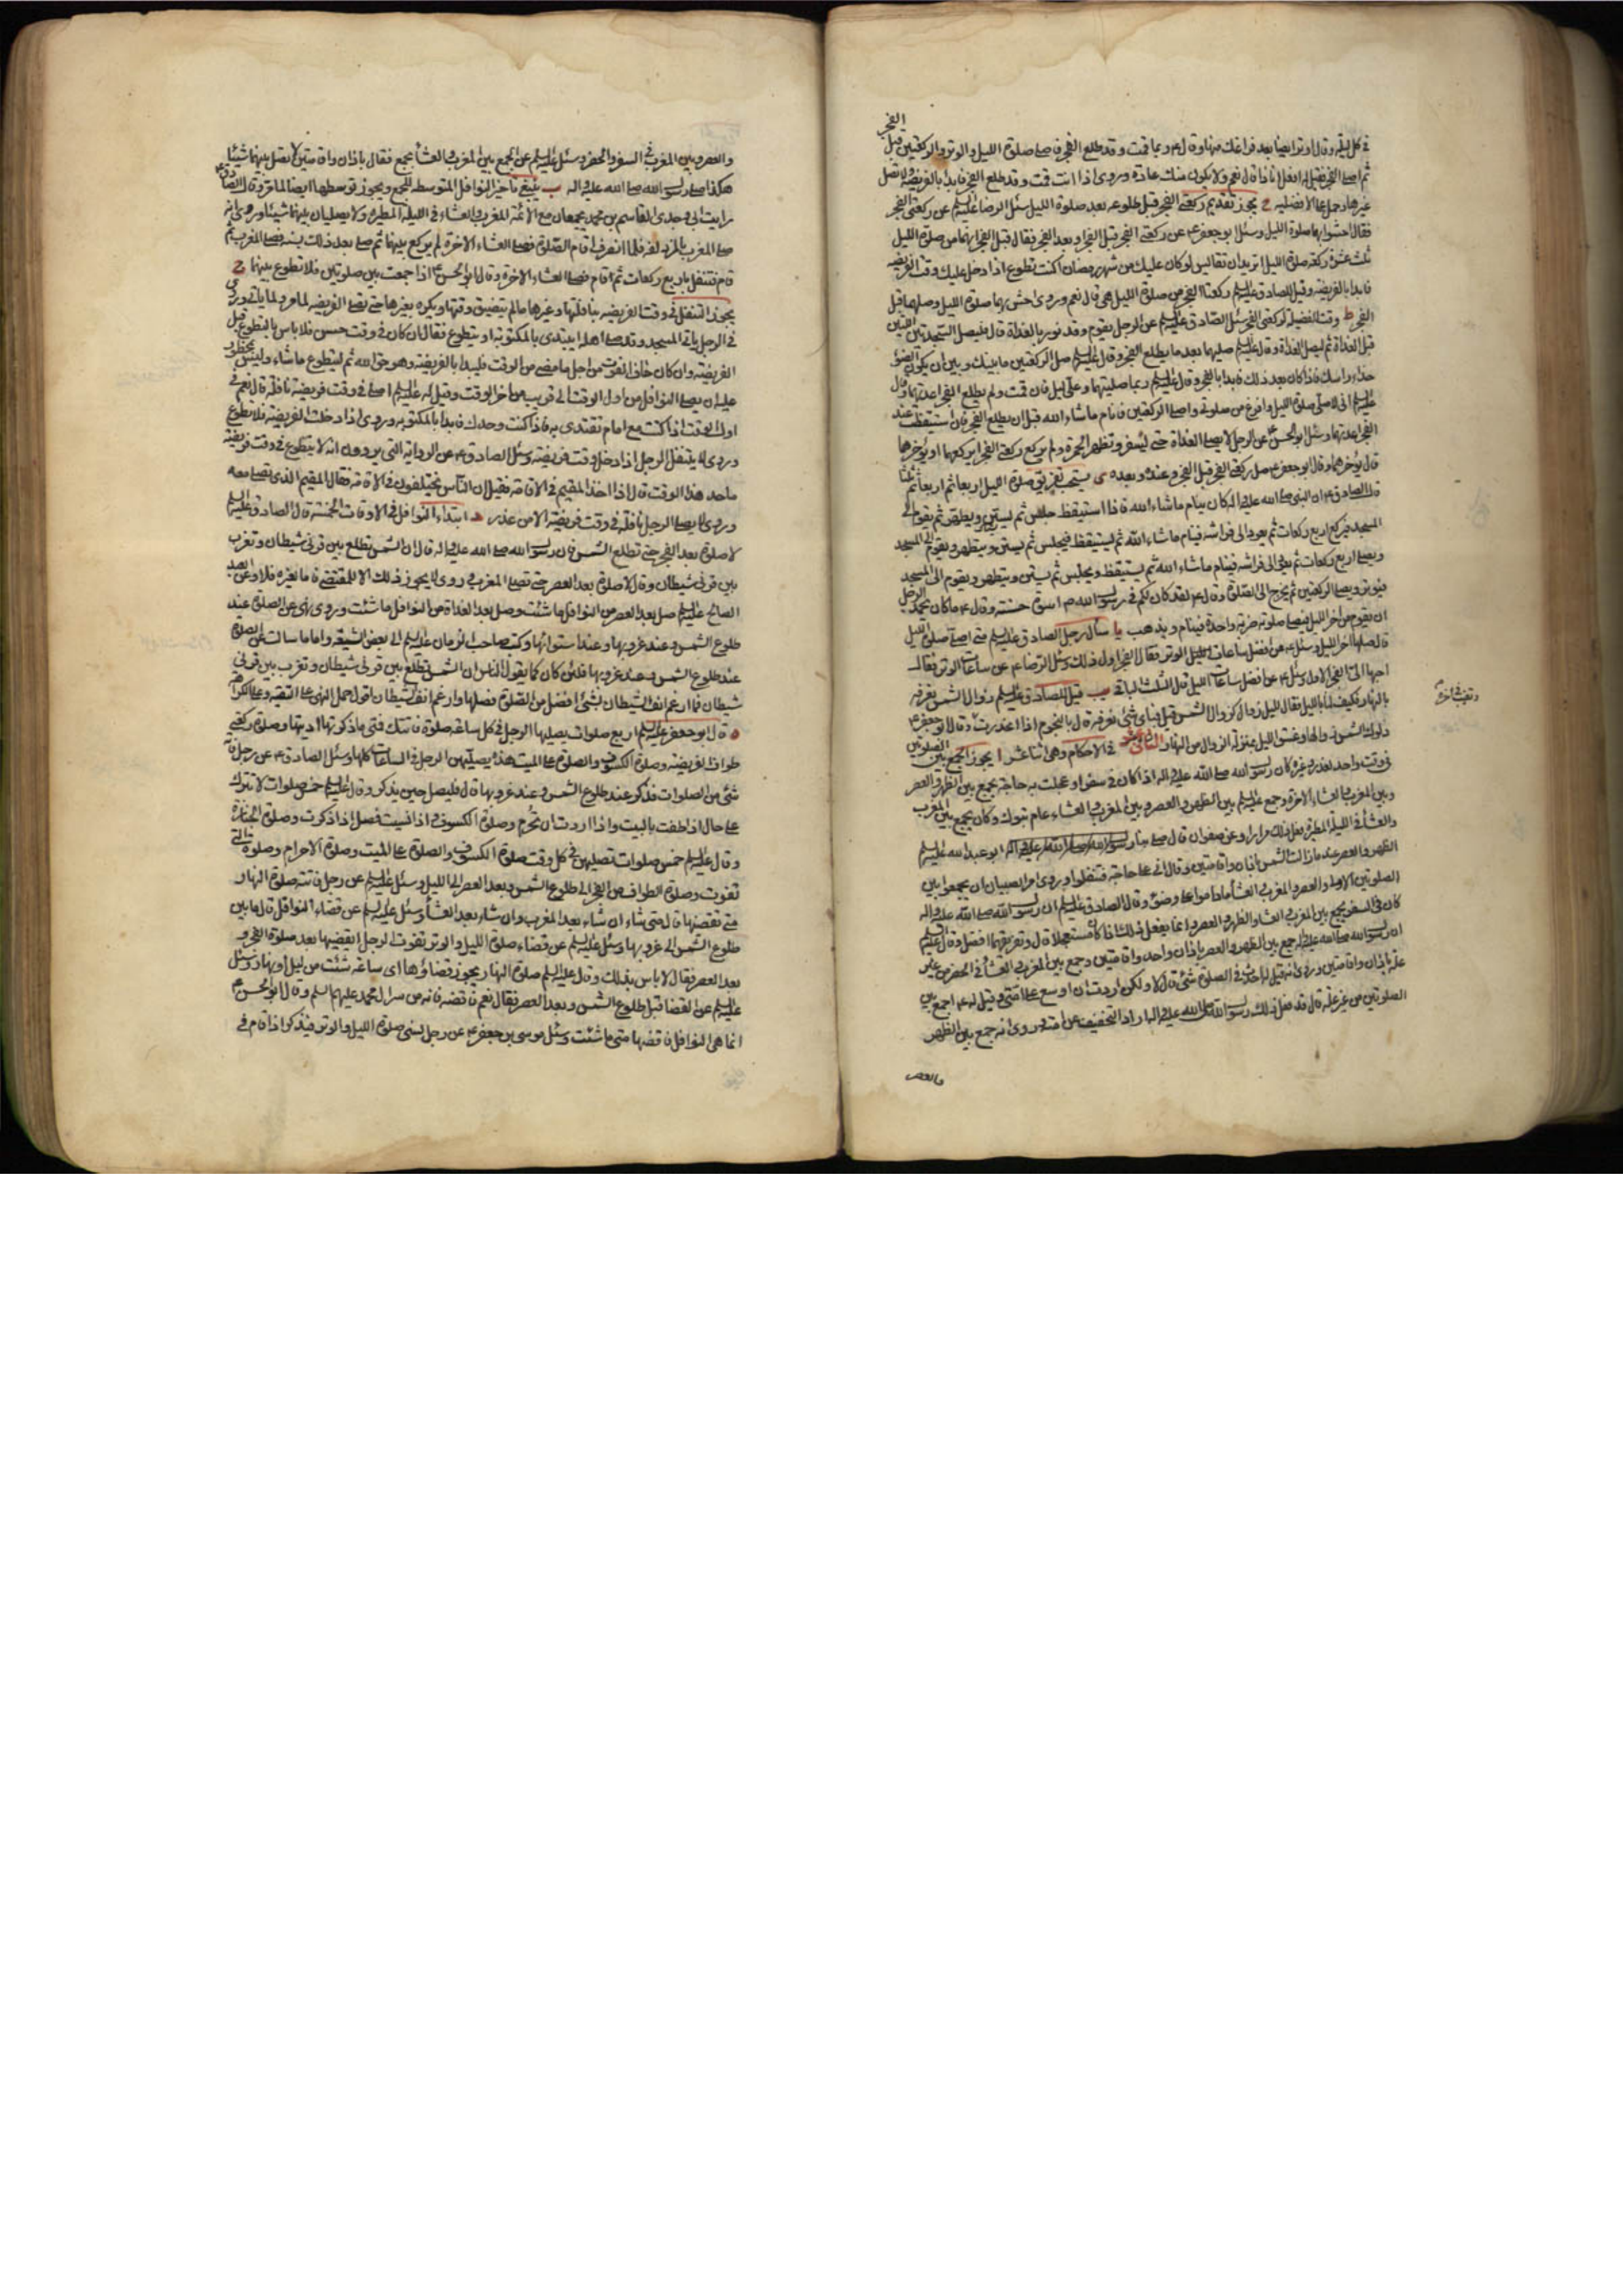 في كل ليلة وقال اوترايضا بعد فراغك منها وقال ع ربما قمت وقد طلع الفجر فاصلي صلوة الليل والوتر والركعتين قبل الفجر
ثم اصلي الفجر فقيل له افعل انا ذا قال نعم ولا يكون منك عادة وروي اذا انت قمت وقد طلع الفجر فابدأ بالفريضة ولا تصل
غيرها وحمل على الافضلية ح يجوز تقديم ركعتي الفجر قبل طلوعه بعد صلوة الليل سئل الرضا عليه السلم عن ركعتي الفجر
فقال احشوا بهما صلوة الليل وسئل ابو جعفر ع عن ركعتي الفجر قبل الفجر او بعد الفجر فقال قبل الفجر انهما من صلوة الليل
ثلث عشرة ركعة صلوة الليل اتريد ان تقايس لو كان عليك من شهر رمضان اكنت تطوع اذا دخل عليك وقت الفريضة
فابدأ بالفريضة وقيل للصادق عليه السلم ركعتا الفجر من صلوة الليل هي قال نعم وروي احش بهما صلوة الليل وصلهما قبل
الفجر ط وقت الفضيلة لركعتي الفجر سئل الصادق عليه السلم عن الرجل يقوم وقد نور بالغداة قال فليصل السجدتين اللتين
قبل الغداة ثم ليصل الغداة وقال عليه السلم صليهما بعد ما يطلع الفجر وقال عليه السلم صل الركعتين ما بينك وبين ان يكون الضوء
حذاء راسك فاذا كان بعد ذلك فابدأ بالفجر وقال عليه السلم ربما صليتهما وعلي ليل فان قمت ولم يطلع الفجر اعدتهما وقال
عليه السلم اني لاصلي صلوة الليل وافرغ من صلوتي واصلي الركعتين فانام ما شاء الله قبل ان يطلع الفجر فان استيقظت عند
الفجر اعدتهما وسئل ابو الحسن ع عن الرجل لا يصلي الغداة حتى يسفر وتظهر الحمرة ولم يركع ركعتي الفجر ايركعهما او يؤخرهما
قال يؤخرهما وقال ابو جعفر ع صل ركعتي الفجر قبل الفجر وعنده وبعده ى يستحب تفريق صلوة الليل اربعا ثم اربعا ثم ثلثا
قال الصادق ع ان النبي صلى الله عليه واله كان ينام ما شاء الله فاذا استيقظ جلس ثم يستن ويتطهر ثم يقوم الى
المسجد فيركع اربع ركعات ثم يعود الى فراشه فينام ما شاء الله ثم يستيقظ فيجلس ثم يستن ويتطهر ويقوم الى المسجد
ويصلي اربع ركعات ثم يعود الى فراشه فينام ما شاء الله ثم يستيقظ ويجلس ثم يستن ويتطهر ويقوم الى المسجد
فيوتر ويصلي الركعتين ثم يخرج الى الصلوة وقال ع لقد كان لكم في رسول الله ص اسوة حسنة وقال ع ما كان يحمد الرجل
ان يقوم من اخر الليل فيصلي صلوته ضربة واحدة فينام ويذهب يا سأل رجل الصادق عليه السلم متى اصلي صلوة الليل
قال صلها اخر الليل وسئل ع عن افضل ساعات الليل الوتر فقال الفجر اول ذلك وسئل الرضا ع عن ساعات الوتر فقال
احبها الي الفجر الاول وسئل ع عن افضل ساعات الليل قال الثلث الباقي يب قيل للصادق عليه السلم زوال الشمس نعرفه
بالنهار فكيف لنا بالليل فقال لليل زوال كزوال الشمس قيل فباي شئ نعرفه قال بالنجوم اذا انحدرت وقال ابو جعفر ع
دلوك الشمس زوالها وغسق الليل بمنزلة الزوال من النهار الثاني عشر في الاحكام وهي اثنا عشر ا يجوز الجمع بين الصلوتين
في وقت واحد لعذر وغيره كان رسول الله صلى الله عليه واله اذا كان في سفر او عجلت به حاجة يجمع بين الظهر والعصر
وبين المغرب والعشاء الاخرة وجمع عليه السلم بين الظهر والعصر وبين المغرب والعشاء عام تبوك وكان يجمع بين المغرب
والعشاء في الليلة المطيرة فعل ذلك مرارا وعن صفوان قال صلى بنا رسول الله صلى الله عليه واله ابو عبد الله عليه السلم
الظهر والعصر عند ما زالت الشمس باذان واقامتين وقال اني على حاجة فتنفلوا وروي امر الصبيان ان يجمعوا بين
الصلوتين الاولى والعصر والمغرب والعشاء ما داموا على وضوء وقال الصادق عليه السلم ان رسول الله صلى الله عليه واله
كان في السفر يجمع بين المغرب والعشاء والظهر والعصر وانما يفعل ذلك اذا كان مستعجلا قال وتفريقهما افضل وقال عليه السلم
ان رسول الله صلى الله عليه واله جمع بين الظهر والعصر باذان واحد واقامتين وجمع بين المغرب والعشاء في الحضر من غير
علة باذان واقامتين وروي انه قيل له احدث في الصلوة شئ قال لا ولكن اردت ان اوسع على امتي وقيل له ع اجمع بين
الصلوتين من غير علة قال قد فعل ذلك رسول الله صلى الله عليه واله اراد التخفيف عن امته وروي انه جمع بين الظهر
والعصر
والعصر وبين المغرب في السفر والحضر وسئل عليه السلم عن الجمع بين المغرب والعشاء بجمع فقال باذان واقامتين لا تصل بينهما شيئا
هكذا صلى رسول الله صلى الله عليه واله ب ينبغي تاخير النوافل المتوسطة للجمع ويجوز توسطها ايضا لما مر وقال الصادق ع
رايت ابي وجدي القاسم بن محمد يجمعان مع الائمة المغرب والعشاء في الليلة المطيرة ولا يصليان بينهما شيئا وروي انه
صلى المغرب بالمزدلفة فلما انصرف اقام الصلوة فصلى العشاء الاخرة لم يركع بينهما ثم صلى بعد ذلك بسنة فصلى المغرب ثم
قام فتنفل باربع ركعات ثم اقام فصلى العشاء الاخرة وقال ابو الحسن ع اذا جمعت بين صلوتين فلا تطوع بينهما ج
يجوز التنفل في وقت الفريضة بنافلتها وغيرها ما لم يتضيق وقتها ويكره بغيرها حتى تصلى الفريضة لما مر ولما ياتي وروي
في الرجل ياتي المسجد وقد صلى اهله ايبتدئ بالمكتوبة او يتطوع فقال ان كان في وقت حسن فلا باس بالتطوع قبل
الفريضة وان كان خاف الفوت من اجل ما مضى من الوقت فليبدأ بالفريضة وهو حق الله ثم ليتطوع ما شاء وليس بمحظور
عليه ان يصلي النوافل من اول الوقت الى قريب من اخر الوقت وقيل له عليه السلم اصلي في وقت فريضة نافلة قال نعم في
اول الوقت اذا كنت مع امام تقتدي به فاذا كنت وحدك فابدأ بالمكتوبة وروي اذا دخلت الفريضة فلا تطوع
وروي لا يتنفل الرجل اذا دخل وقت فريضة وسئل الصادق ع عن الرواية التي يروون انه لا يتطوع في وقت فريضة
ما حد هذا الوقت قال اذا اخذ المقيم في الاقامة فقيل ان الناس يختلفون في الاقامة فقال المقيم الذي تصلي معه
وروي لا يصلي الرجل نافلة في وقت فريضة الا من عذر د ابتداء النوافل في الاوقات الخمسة قال الصادق عليه السلم
لا صلوة بعد الفجر حتى تطلع الشمس فان رسول الله صلى الله عليه واله قال ان الشمس تطلع بين قرني شيطان وتغرب
بين قرني شيطان وقال لا صلوة بعد العصر حتى تصلي المغرب وروي لا يجوز ذلك الا للمقتضي فاما لغيره فلا وعن العبد
الصالح عليه السلم صل بعد العصر من النوافل ما شئت وصل بعد الغداة من النوافل ما شئت وروي نهي عن الصلوة عند
طلوع الشمس وعند غروبها وعند استوائها وكتب صاحب الزمان عليه السلم الى بعض الشيعة واما ما سالت عن الصلوة
عند طلوع الشمس وعند غروبها فلئن كان كما يقول الناس ان الشمس تطلع بين قرني شيطان وتغرب بين قرني
شيطان فما ارغم انف الشيطان بشئ افضل من الصلوة فصلها وارغم انف الشيطان اقول حمل النهي على التقية وعلى الكراهة
ه قال ابو جعفر عليه السلم اربع صلوات يصليها الرجل في كل ساعة صلوة فاتتك فمتى ما ذكرتها اديتها وصلوة ركعتي
طواف الفريضة وصلوة الكسوف والصلوة على الميت هذه يصليهن الرجل في الساعات كلها وسئل الصادق ع عن رجل فاته
شئ من الصلوات فذكر عند طلوع الشمس وعند غروبها قال فليصل حين يذكر وقال عليه السلم خمس صلوات لا تترك
على حال اذا طفت بالبيت واذا اردت ان تحرم وصلوة الكسوف واذا نسيت فصل اذا ذكرت وصلوة الجنازة
وقال عليه السلم خمس صلوات تصليهن في كل وقت صلوة الكسوف والصلوة على الميت وصلوة الاحرام وصلوة التي
تفوت وصلوة الطواف من الفجر الى طلوع الشمس وبعد العصر الى الليل وسئل عليه السلم عن رجل فاتته صلوة النهار
متى يقضيها قال متى شاء ان شاء بعد المغرب وان شاء بعد العشاء وسئل عليه السلم عن قضاء النوافل قال ما بين
طلوع الشمس الى غروبها وسئل عليه السلم عن قضاء صلوة الليل والوتر تفوت الرجل ايقضيها بعد صلوة الفجر و
بعد العصر فقال لا باس بذلك وقال عليه السلم صلوة النهار يجوز قضاؤها اى ساعة شئت من ليل او نهار وسئل
عليه السلم عن القضاء قبل طلوع الشمس وبعد العصر فقال نعم فاقضه فانه من سر ال محمد عليهم السلم وقال ابو الحسن ع
انما هي النوافل فاقضها متى ما شئت وسئل موسى بن جعفر ع عن رجل نسي صلوة الليل والوتر فيذكر اذا قام في